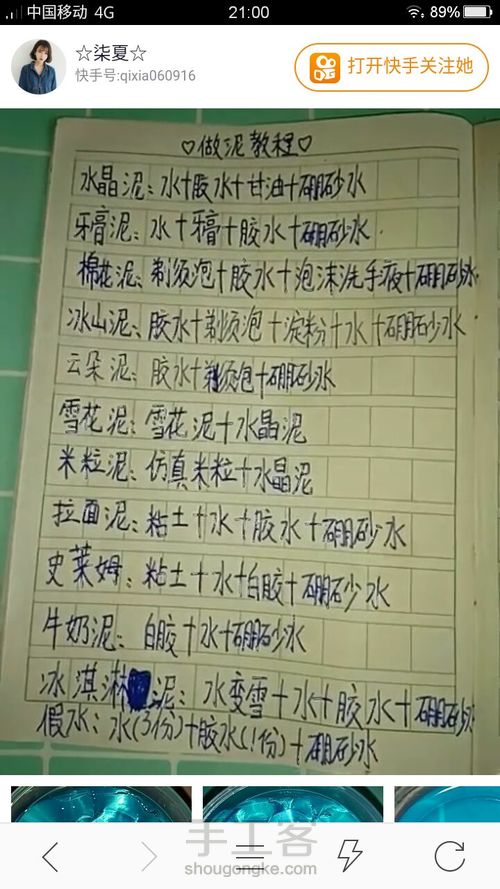 中国移动 4G
21:00
89%
☆柒夏☆
快手号:qixia060916
打开快手关注她
♡做泥教程♡
水晶泥:水+胶水+甘油+硼砂水
牙膏泥:水+牙膏+胶水+硼砂水.
棉花泥:剃须泡+胶水+泡沫洗手液+硼砂水
冰山泥:胶水+剃须泡+淀粉+水+硼砂水
云朵泥:胶水+剃须泡+硼砂水
雪花泥:雪花泥+水晶泥
米粒泥:仿真米粒+水晶泥
拉面泥:粘土+水+胶水+硼砂水
史莱姆:粘土+水+白胶+硼砂水
牛奶泥:白胶+水+硼砂水
冰淇淋泥:水变雪+水+胶水+硼砂水
假水:水(3份)+胶水(1份)+硼砂水
手工客
shougongke.com